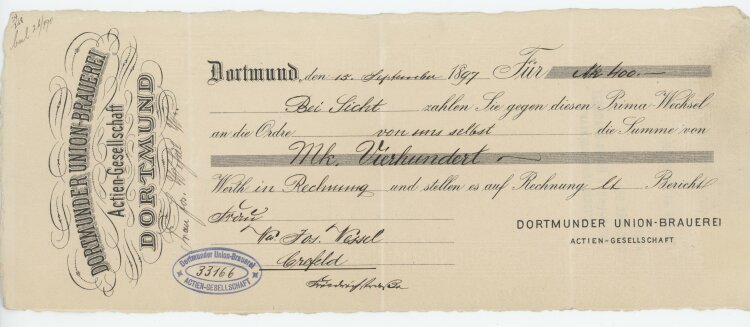 DORTMUNDER UNION-BRAUEREI
Actien-Gesellschaft
DORTMUND
Dortmund, den 15. September 1897 Für Mk. 400.—
Bei Sicht zahlen Sie gegen diesen Prima-Wechsel
an die Ordre von uns selbst die Summe von
Mk. Vierhundert
Werth in Rechnung und stellen es auf Rechnung lt Bericht
Frau
Jos. Wessel
Crefeld
DORTMUNDER UNION-BRAUEREI
ACTIEN-GESELLSCHAFT
Dortmunder Union-Brauerei
33166
ACTIEN-GESELLSCHAFT